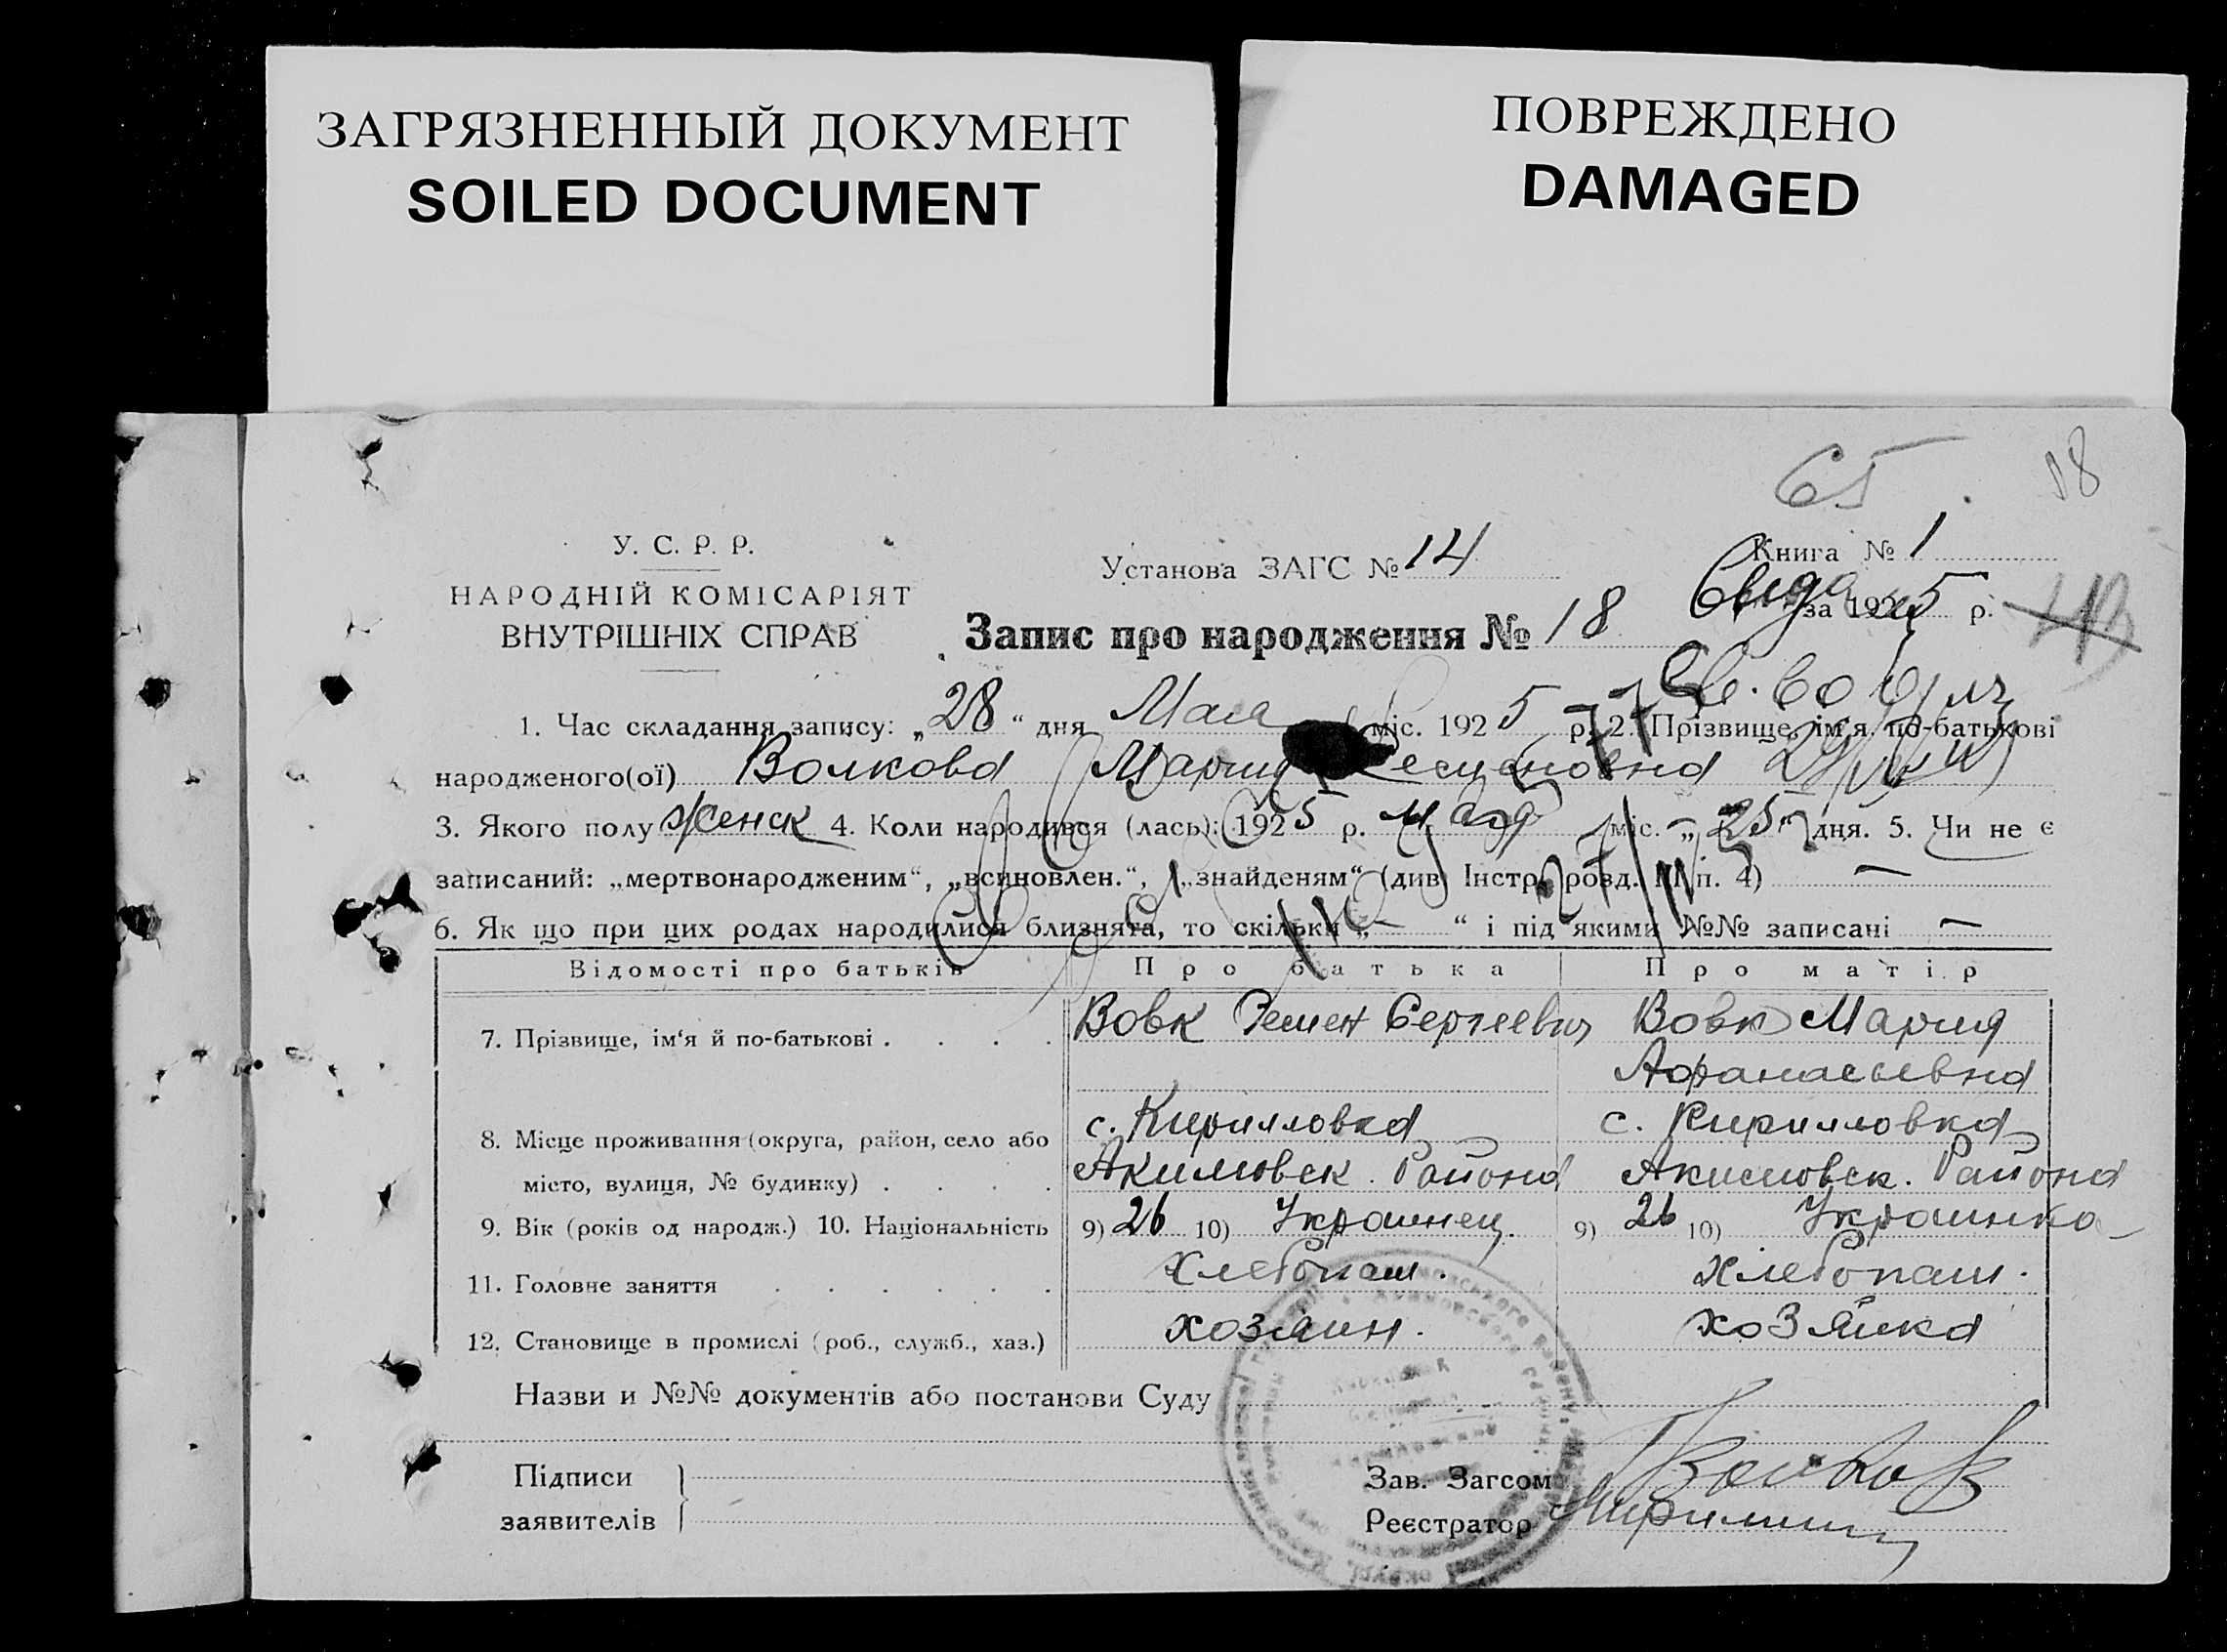 ЗАГРЯЗНЕННЫЙ ДОКУМЕНТ
SOILED DOCUMENT
ПОВРЕЖДЕНО
DAMAGED
65
18
У. С. Р. Р.
НАРОДНІЙ КОМІСАРІЯТ
ВНУТРІШНІХ СПРАВ
Установа ЗАГС № 14
Книга № 1
за 1925 р.
Запис про народження № 18
1. Час складання запису: „28“ дня Мая міс. 1925 р. 2. Прізвище, ім'я, по-батькові
народженого(ої) Волкова Мария
3. Якого полу женск 4. Коли народився (лась): 1925 р. мая міс. „25“ дня. 5. Чи не є
записаний: „мертвонародженим“, „всиновлен.“, „знайденям“ (див. Інстр. розд. III п. 4) —
6. Як що при цих родах народилися близнята, то скільки „—“ і під якими №№ записані —
Відомості про батьків Про батька Про матір
7. Прізвище, ім‘я й по-батькові . . . . Вовк Семен Сергеевич Вовк Мария
Афанасьевна
8. Місце проживання (округа, район, село або с. Кирилловка с. Кирилловка
місто, вулиця, № будинку) . . . . Акимовск. Района Акимовск. Района
9. Вік (років од народж.) 10. Національність 9) 26 10) Украинец. 9) 26 10) Украинка
11. Головне заняття . . . . . . Хлебопаш. хлебопаш.
12. Становище в промислі (роб., служб., хаз.) хозяин. хозяйка
Назви и №№ документів або постанови Суду
Підписи
заявителів
Зав. Загсом Волков
Реєстратор